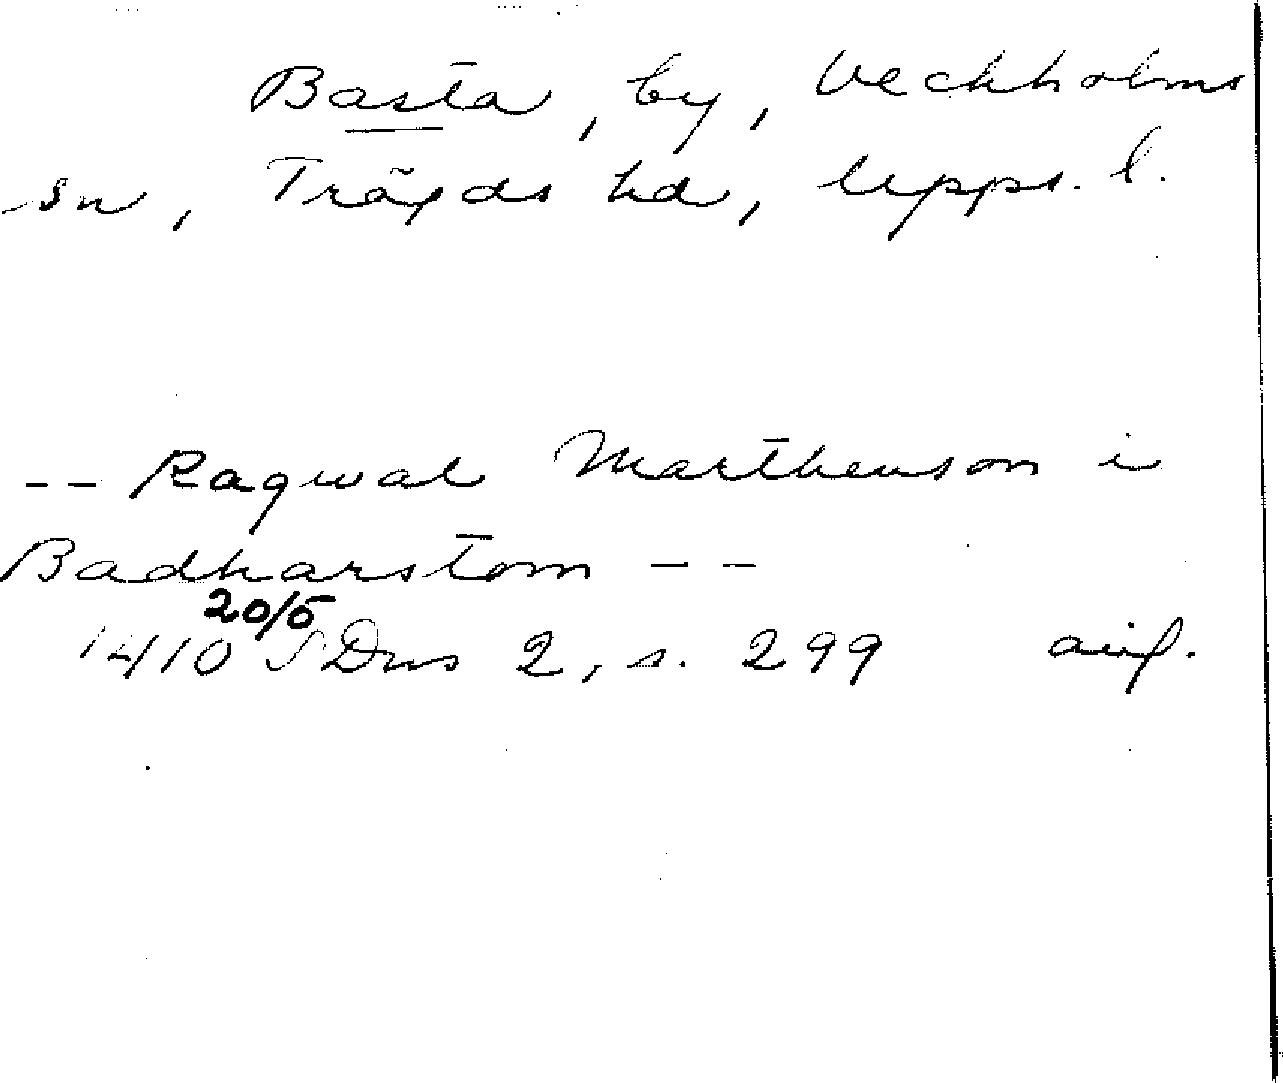 Basta, by, Veckholms
sn, Trögds hd, Upps. l.
-- Ragwal Marthenson i
Badharstom --
20/5
1410 SDns 2, s. 299 avf.